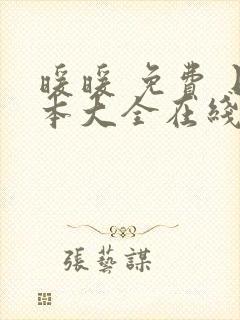 暖暖 免費
本大全在綫
張藝謀